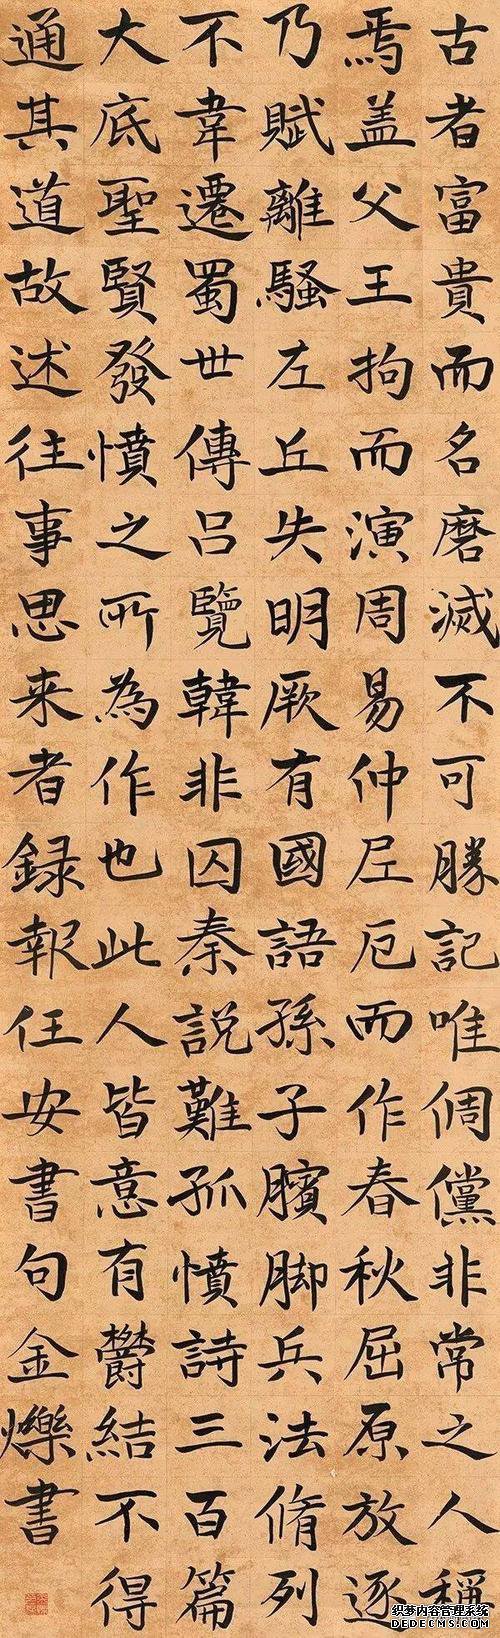 古者富貴而名磨滅不可勝記唯倜儻非常之人稱
焉盖父王拘而演周易仲尼厄而作春秋屈原放逐
乃賦離騷左丘失明厥有國語孫子臏脚兵法脩列
不韋遷蜀世傳吕覽韓非囚秦説難孤憤詩三百篇
大底聖賢發憤之所為作也此人皆意有鬱結不得
通其道故述往事思来者録報任安書句金爍書
织梦内容管理系统
DEDECMS.COM